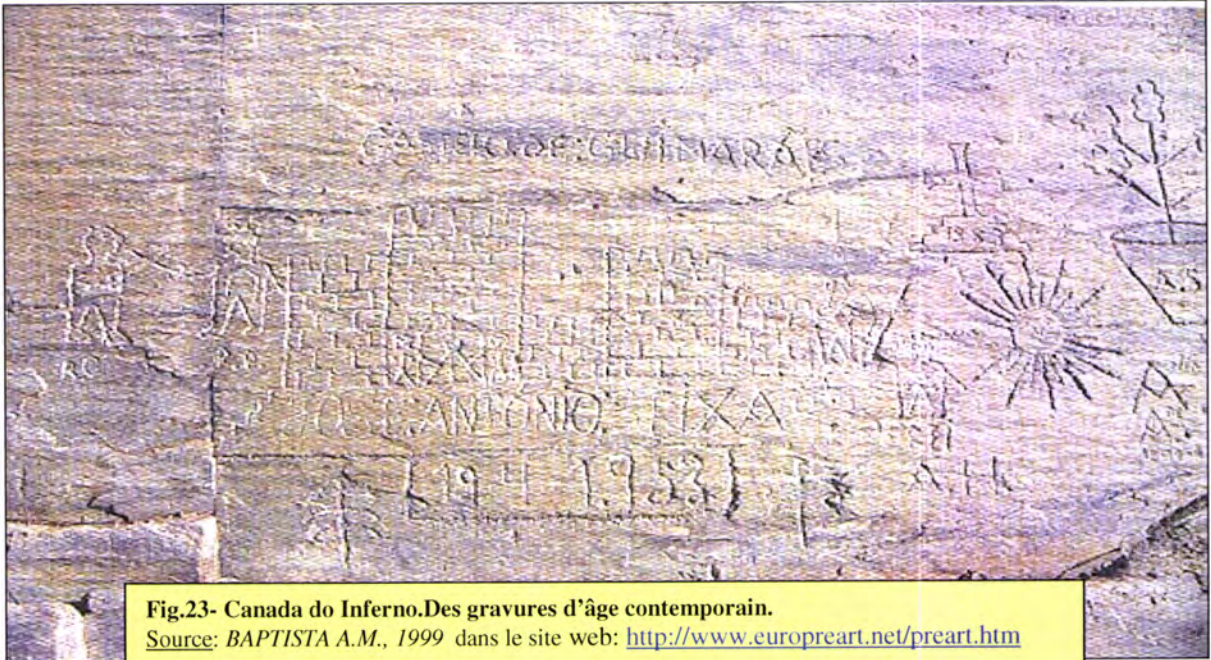 DE GUIMARÃES
R.C
ANTÓNIO. FIXA
19 4 1953
A.H.
A.S
Fig.23- Canada do Inferno.Des gravures d'âge contemporain.
Source: BAPTISTA A.M., 1999 dans le site web: http://www.europreart.net/preart.htm